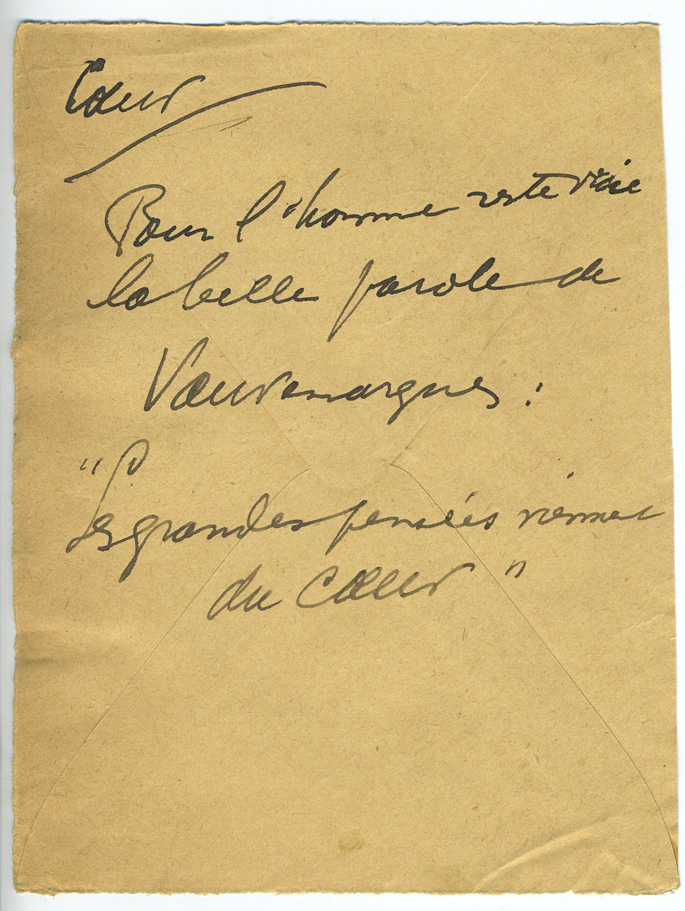 Cœur
Pour l'homme reste vraie
la belle parole de
Vauvenargues :
"Les grandes pensées viennent
du Cœur"